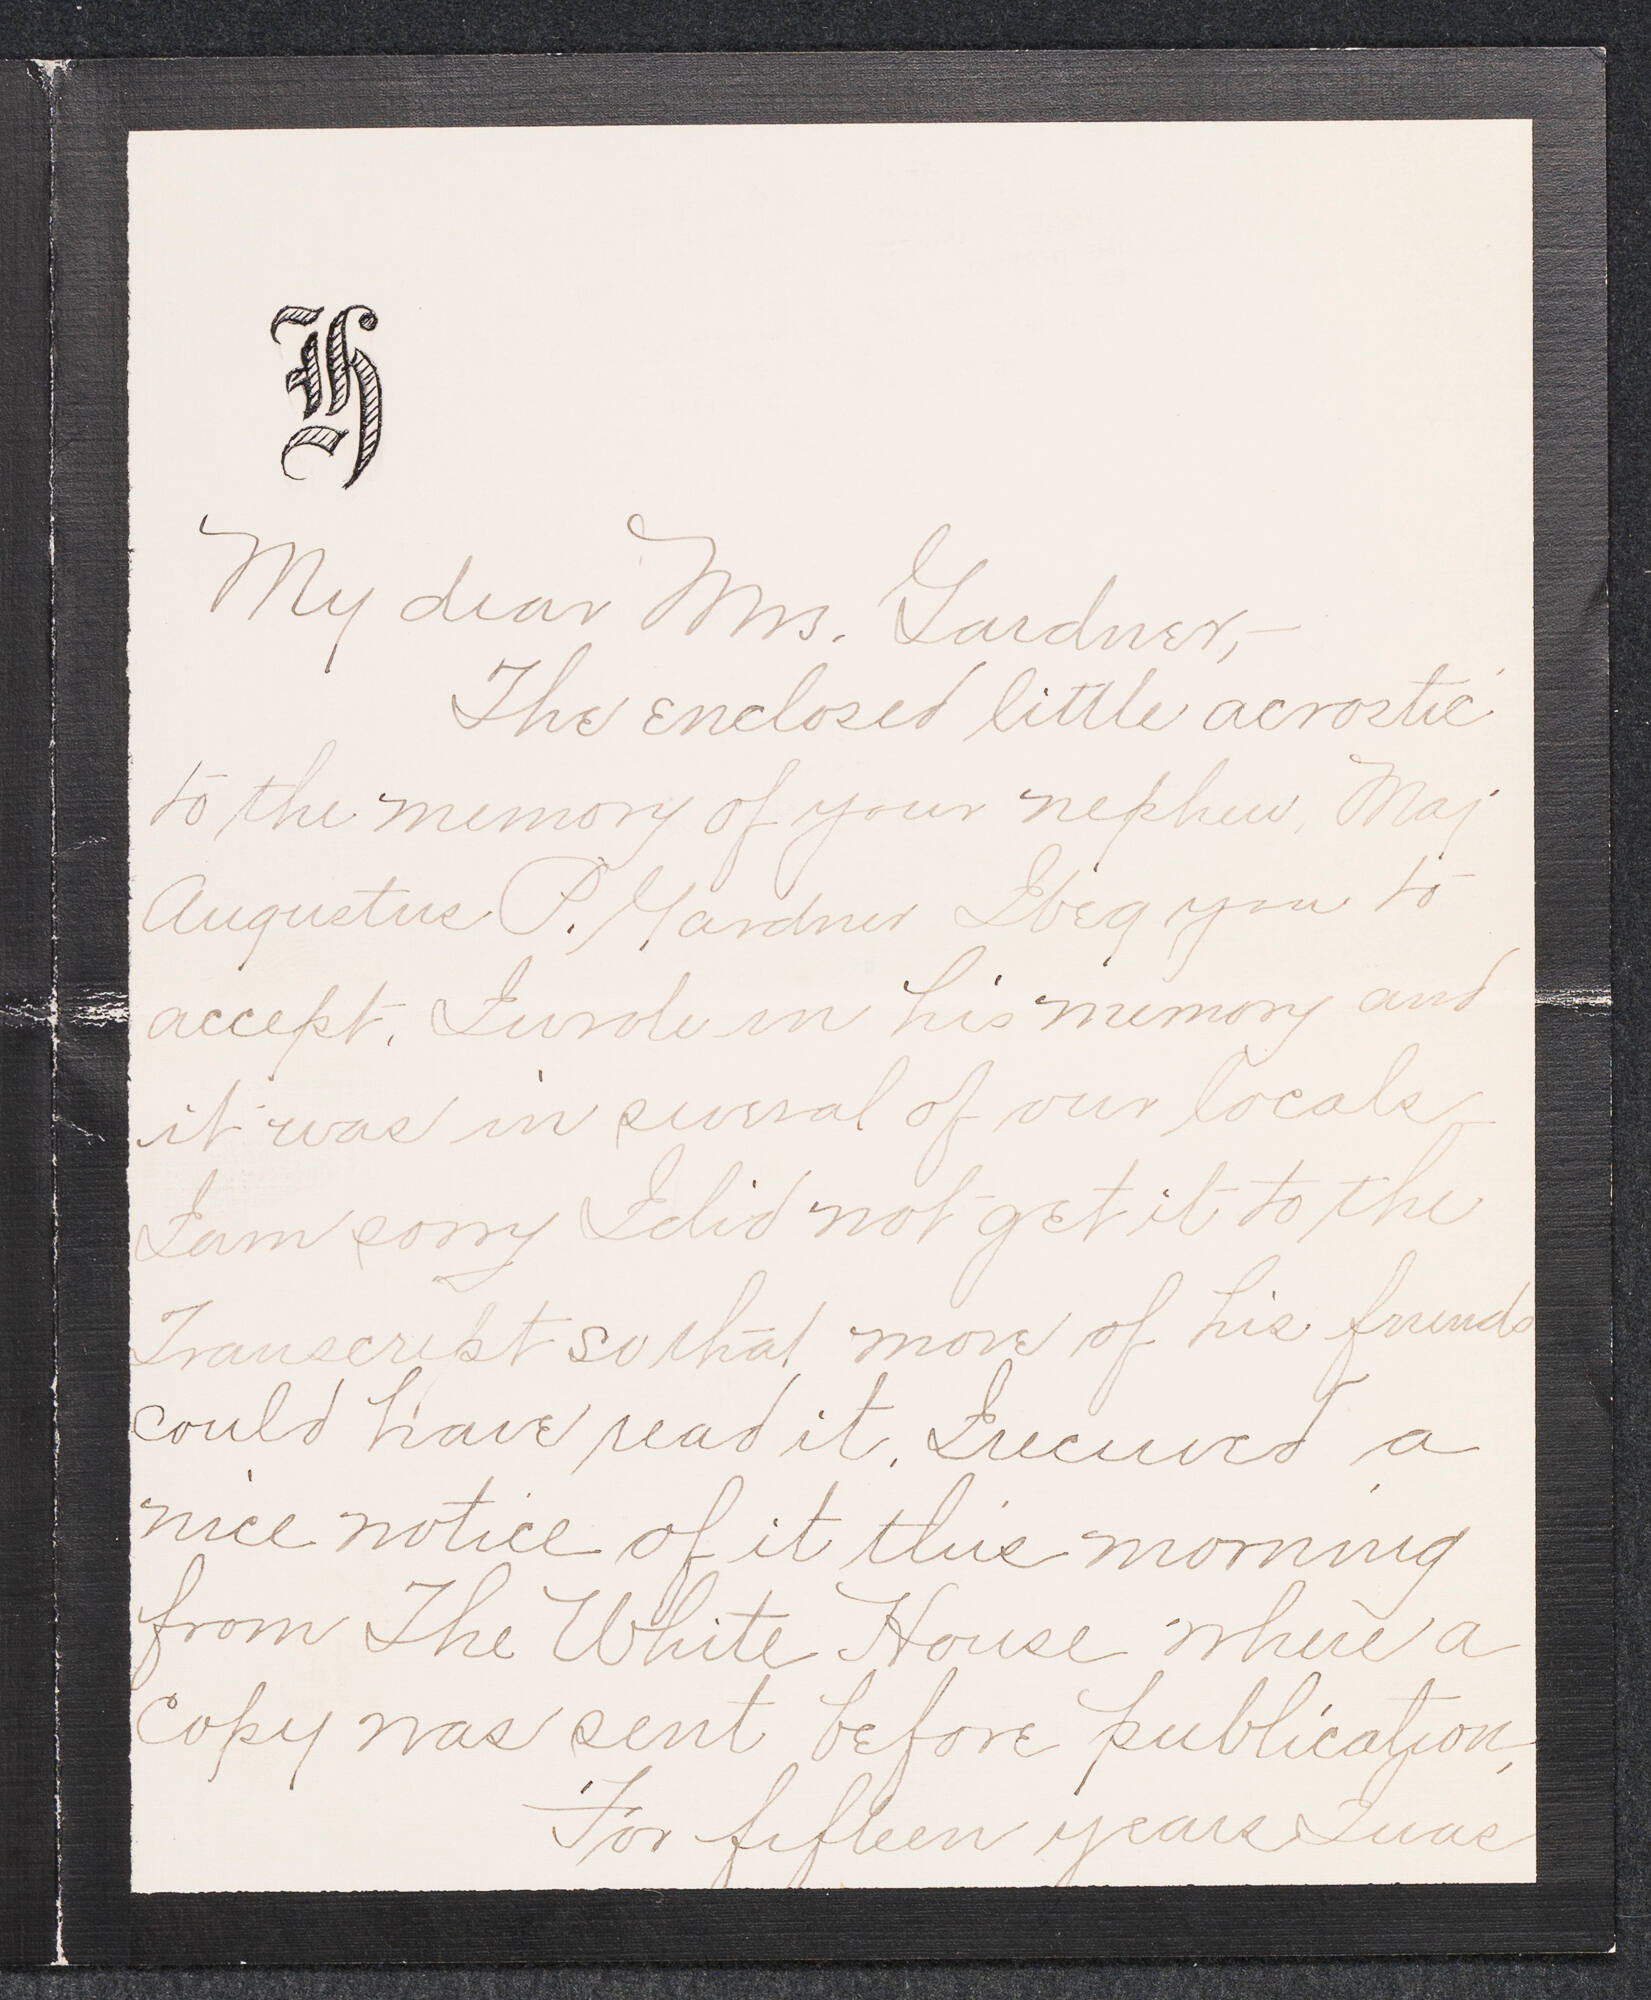 H
My dear Mrs. Gardner,—
The enclosed little acrostic
to the memory of your nephew, Maj
Augustus P. Gardner I beg you to
accept. I wrote in his memory and
it was in several of our locals
I am sorry I did not get it to the
Transcript so that more of his friends
could have read it. I received a
nice notice of it this morning
from The White House where a
copy was sent before publication,
For fifteen years I was